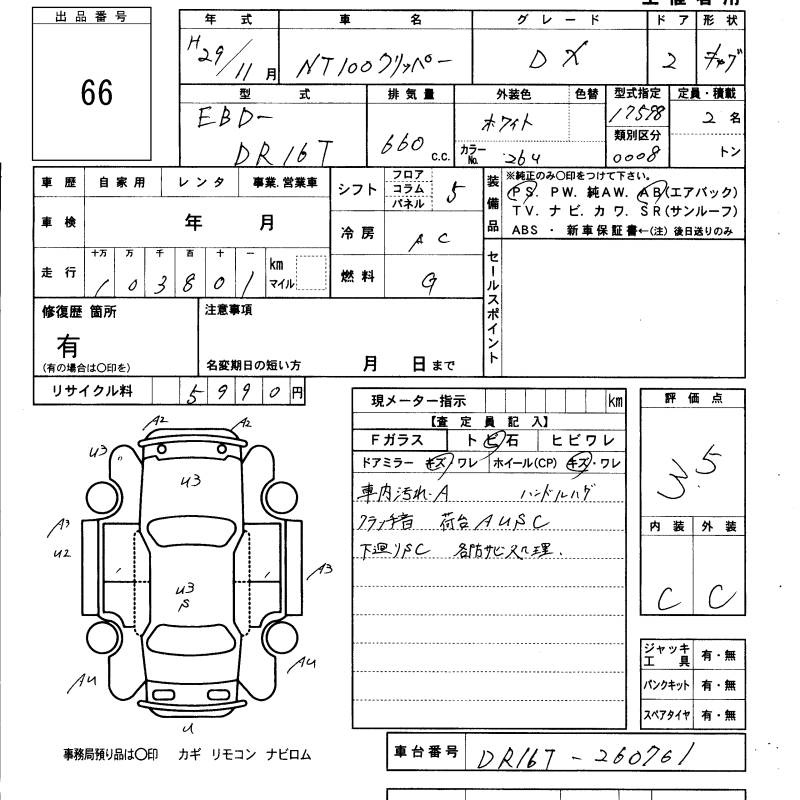 出品番号
66
年式 車名 グレード ドア 形状
H29/11月 NT100クリッパー DX 2 キャブ
型式 排気量 外装色 色替 型式指定 定員・積載
EBD-DR16T 660c.c. ホワイト 17598 2名
カラーNo. 26U 類別区分 0008 トン
車歴 自家用 レンタ 事業.営業車
シフト フロア コラム パネル 5
装備品 ※純正のみ〇印をつけて下さい。
PS. PW. 純AW. AB(エアバック)
TV. ナビ. カワ. SR(サンルーフ)
ABS ・ 新車保証書←(注) 後日送りのみ
車検 年 月
冷房 AC
走行 十万 万 千 百 十 一 km マイル
103801
燃料 G
セールスポイント
修復歴 箇所
有
(有の場合は〇印を)
注意事項
名変期日の短い方 月 日まで
リサイクル料 5990円
現メーター指示 km
【査定員記入】
Fガラス トビ石 ヒビワレ
ドアミラー キズ/ワレ ホイール(CP) キズ・ワレ
車内汚れA ハンドルハゲ
クラッチ音 荷台AUSC
下廻りSC 各防サビ処理.
評価点
3.5
内装 外装
C C
A2 A2
U3
U3
A3
U2
U3
S
A3
A4 A4
U
ジャッキ工具 有・無
パンクキット 有・無
スペアタイヤ 有・無
事務局預り品は〇印 カギ リモコン ナビロム
車台番号 DR16T-260761